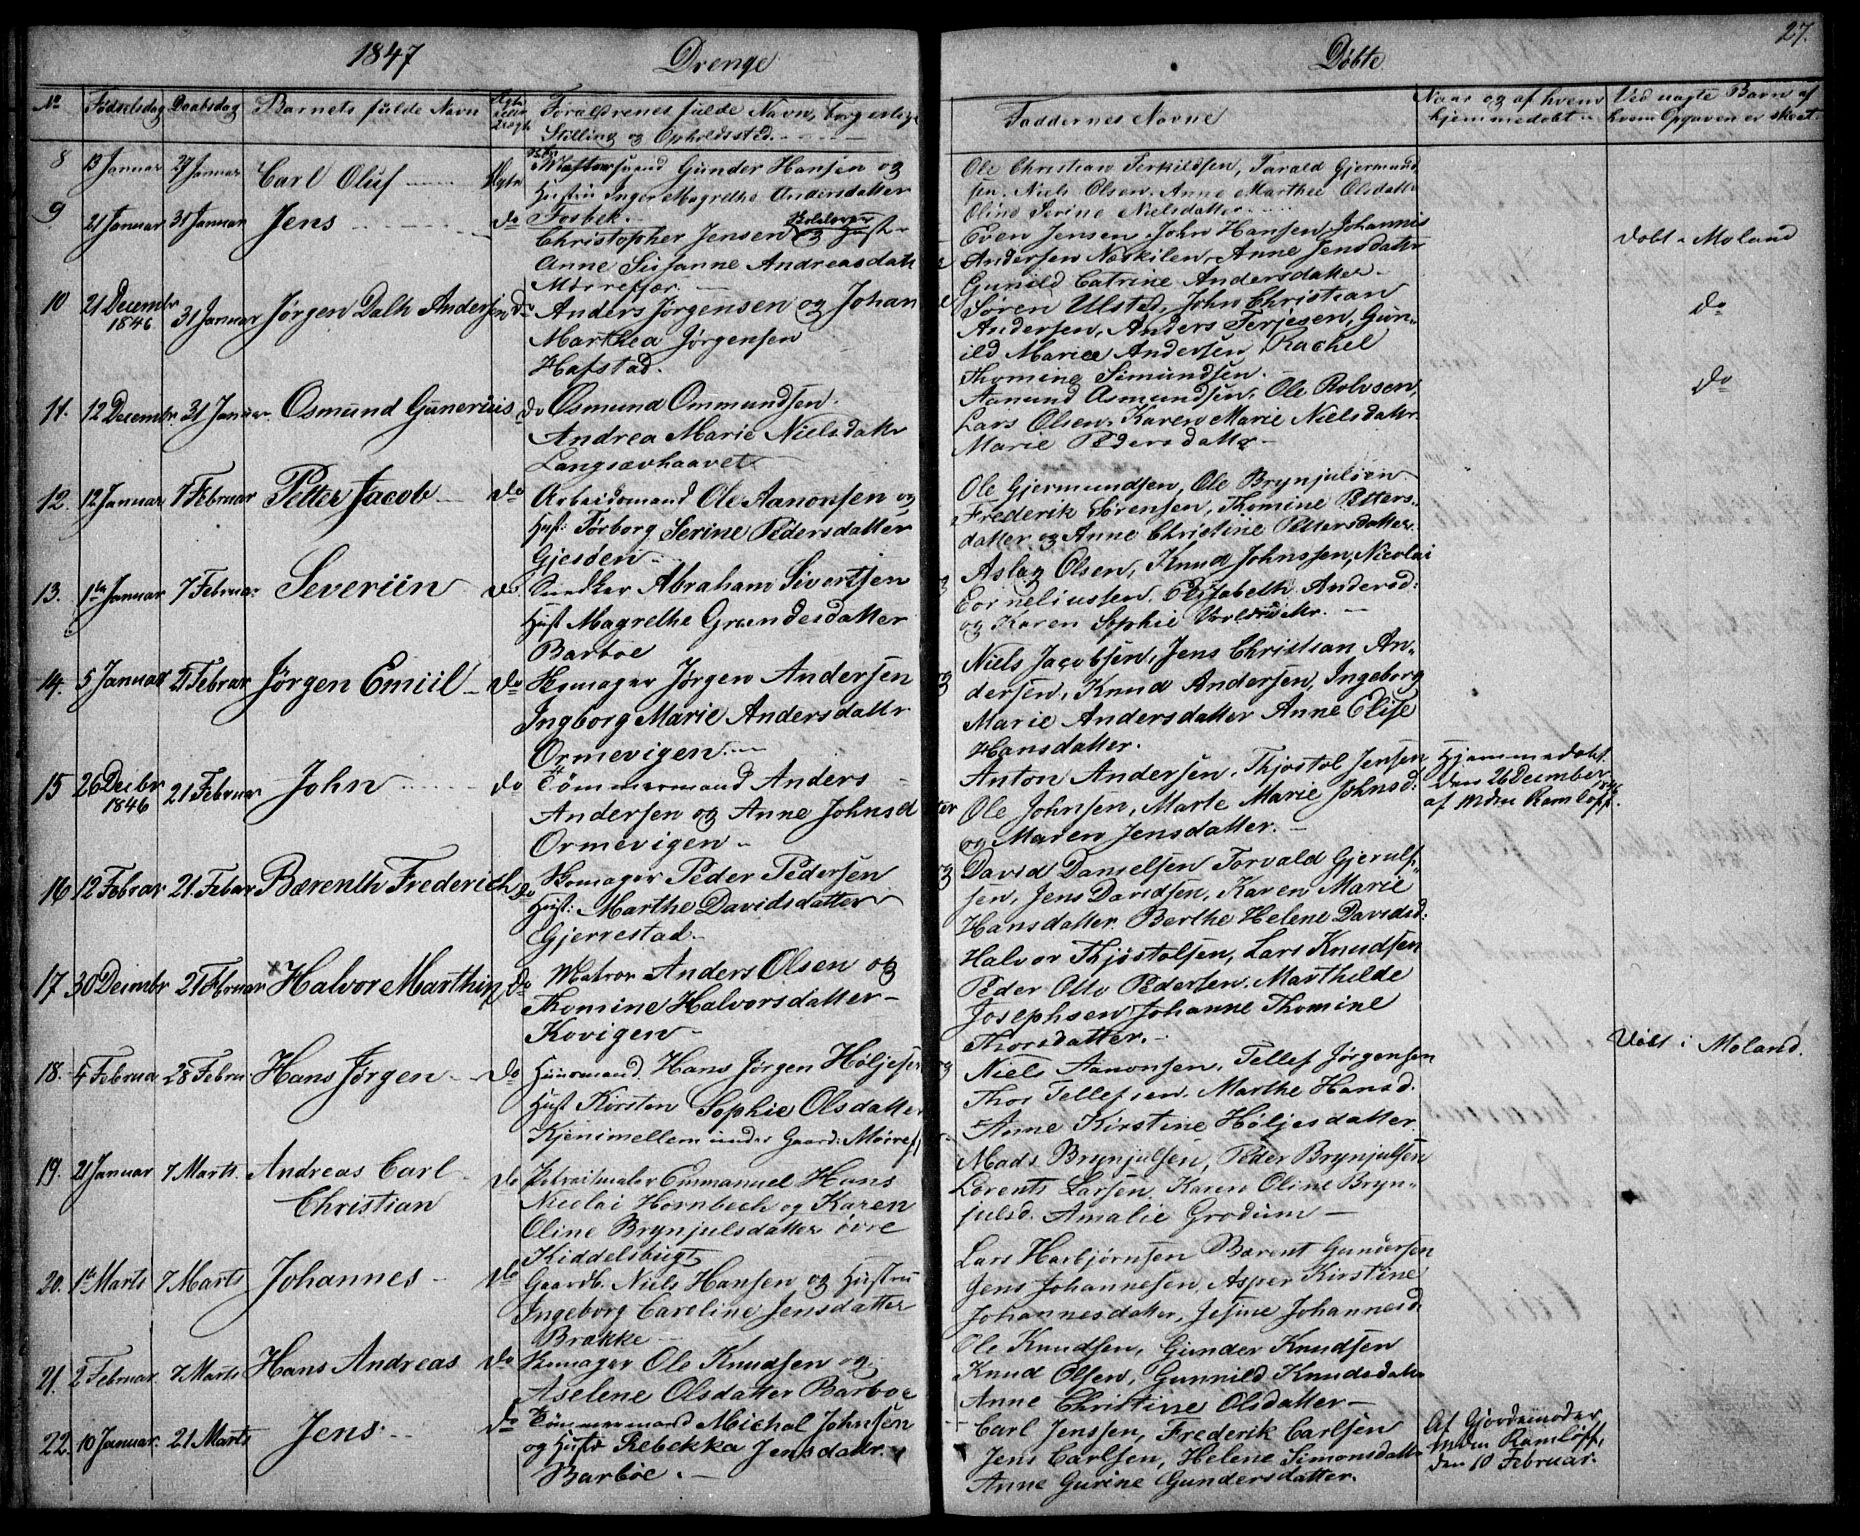 1847 Drenge
Døbte
27.
No Fødselsdag Daabsdag Barnets fulde Navn Forældrenes fulde Navn, borgerlige
Stilling og Opholdssted
Faddernes Navne
Naar og af hvem
hjemmedøbt
Ved uægte Barn af
hvem Opgaven er skeet.
8 13 Januar 27 Januar Carl Oluf Ægte Gunder Hansen og
Hustru Inger Magrethe Andersdatter
Fosbek.
Ole Christian Terkildsen, Tarald Gjermund
sen. Niels Olsen. Anne Marthee Olsdatter
Oline Serine Nielsdatter.
9 21 Januar 31 Januar Jens do Christopher Jensen og Hust
Anne Susanne Andreasdatt
Mørrefjær.
Even Jensen, John Hansen, Johannis
Andersen Neskilen, Anne Jensdatter
Gunild Catrine Andersdatter.
Døbt i Moland
10 21 Decembr
1846 31 Januar Jørgen Dalh Andersen do Anders Jørgensen og Johan
Marthea Jørgensen
Hafstad.
Søren Ulsted, John Christian
Andersen, Anders Terjesen, Gun-
ild Mariee Andersen, Rachel
Thomine Simundsen.
do
11. 12 Decembr 31 Januar. Osmund Gunerius do Osmund Ommundsen.
Andrea Marie Nielsdattr
Langsævhaavet
Aanund Asmundsen, Ole Rolvsen,
Lars Olsen, Karen Marie Nielsdattr.
Marie Pedersdattr
do
12. 12 Januar 7 Februar Petter Jacob do Arbeidsmand Ole Aanonsen og
Hust: Tørborg Serine Pedersdatter
Gjesden
Ole Gjermundsen, Ole Brynjulsen.
Frederik Sørensen, Thomine Petters-
datter og Anne Christine Pettersdatter.
13. 1ste Januar 7 Februar. Severiin do Snedker Abraham Sivertsen
Hust Magrethe Gundesdatter
Barboe
Aslag Olsen, Knud Johnssen, Nicolai
Corneliussen. Elisabeth Andersd:
og Karen Sophie
14. 5 Januar 21 Februar Jørgen Emiil do Skomager Jørgen Andersen
Ingborg Marie Andersdattr
Ormevigen.
Niels Jacobsen, Jens Christian An-
dersen, Knud Andersen, Ingeborg
Marie Andersdatter Anne Elise
Hansdatter.
15 26 Decbr
1846 21 Februar John do Tømmermand Anders
Andersen og Anne Johnsd
Ormevigen
Anton Andersen, Thjøstol Jensen
Ole Johnsen, Marte Marie Johnsd:
og Maren Jensdatter.
Hjemmedøbt
den 26 December
1846
af Mdm Ramløff.
16 12 Februar 21 Februar Bærenth Frederich do Skomager Peder Pedersen
Hust: Marthe Davidsdatter
Gjerrestad.
David Danielsen Torvald Gjerulf-
sen, Jens Davidsen, Karen Marie
Hansdatter. Berthe Helene Davidsd:
17 30 Decembr 21 Februar Halvor Marthin do Matros Anders Olsen og
Thomine Halvorsdatter
Kovigen
Halvor Thjøstolsen, Lars Knudsen
Peder Otto Pedersen. Marthilde
Josephsen Johanne Thomine
Thorsdatter.
18. 4 Februar 28 Februar Hans Jørgen do Huusmand. Hans Jørgen Høljesen
Hust Kirsten Sophie Olsdatter
Kjenimellem under Gaard:
Niels Aanonsen, Tellef Jørgensen
Thor Tellefsen. Marthe Hansd.
Anne Kirstine Høljesdatter
Døbt i Moland.
19. 21 Januar 7 Marts. Andreas Carl
Christian do Emmanuel Hans
Nicolai Hornbech og Karen
Oline Brynjulsdatter øvre
Kiddelsbugt
Mads Brynjulsen, Peder Brynjulsen
Lorents Larsen. Karen Oline Bryn-
julsd. Amalie Grødum
20. 1ste Marts 7 Marts Johannes do Gaardb. Niels Hansen og Hustru
Ingeborg Caroline Jensdatter
Brække
Lars Harbjørnsen Barent Gundersen
Jens Johannesen, Asper Kirstine
Johannesdatter, Jesine Johannesd.
21. 2 Februar. 7 Marts Hans Andreas do Skomager Ole Knudsen og
Aselene Olsdatter Barboe
Ole Knudsen, Gunder Knudsen
Knud Olsen, Gunnild Knudsdatter
Anne Christine Olsdatter
22. 10 Januar. 21 Marts Jens do Tømmermand Michal Johnsen
og Hustr Rebekka Jensdattr.
Barboe.
Carl Jenssen, Frederik Carlsen
Jens Carlsen, Helene Simonsdatter
Anne Gurine Gundersdatter.
Af Gjordemoder
Mdm Ramløff,
den 10 Februar.